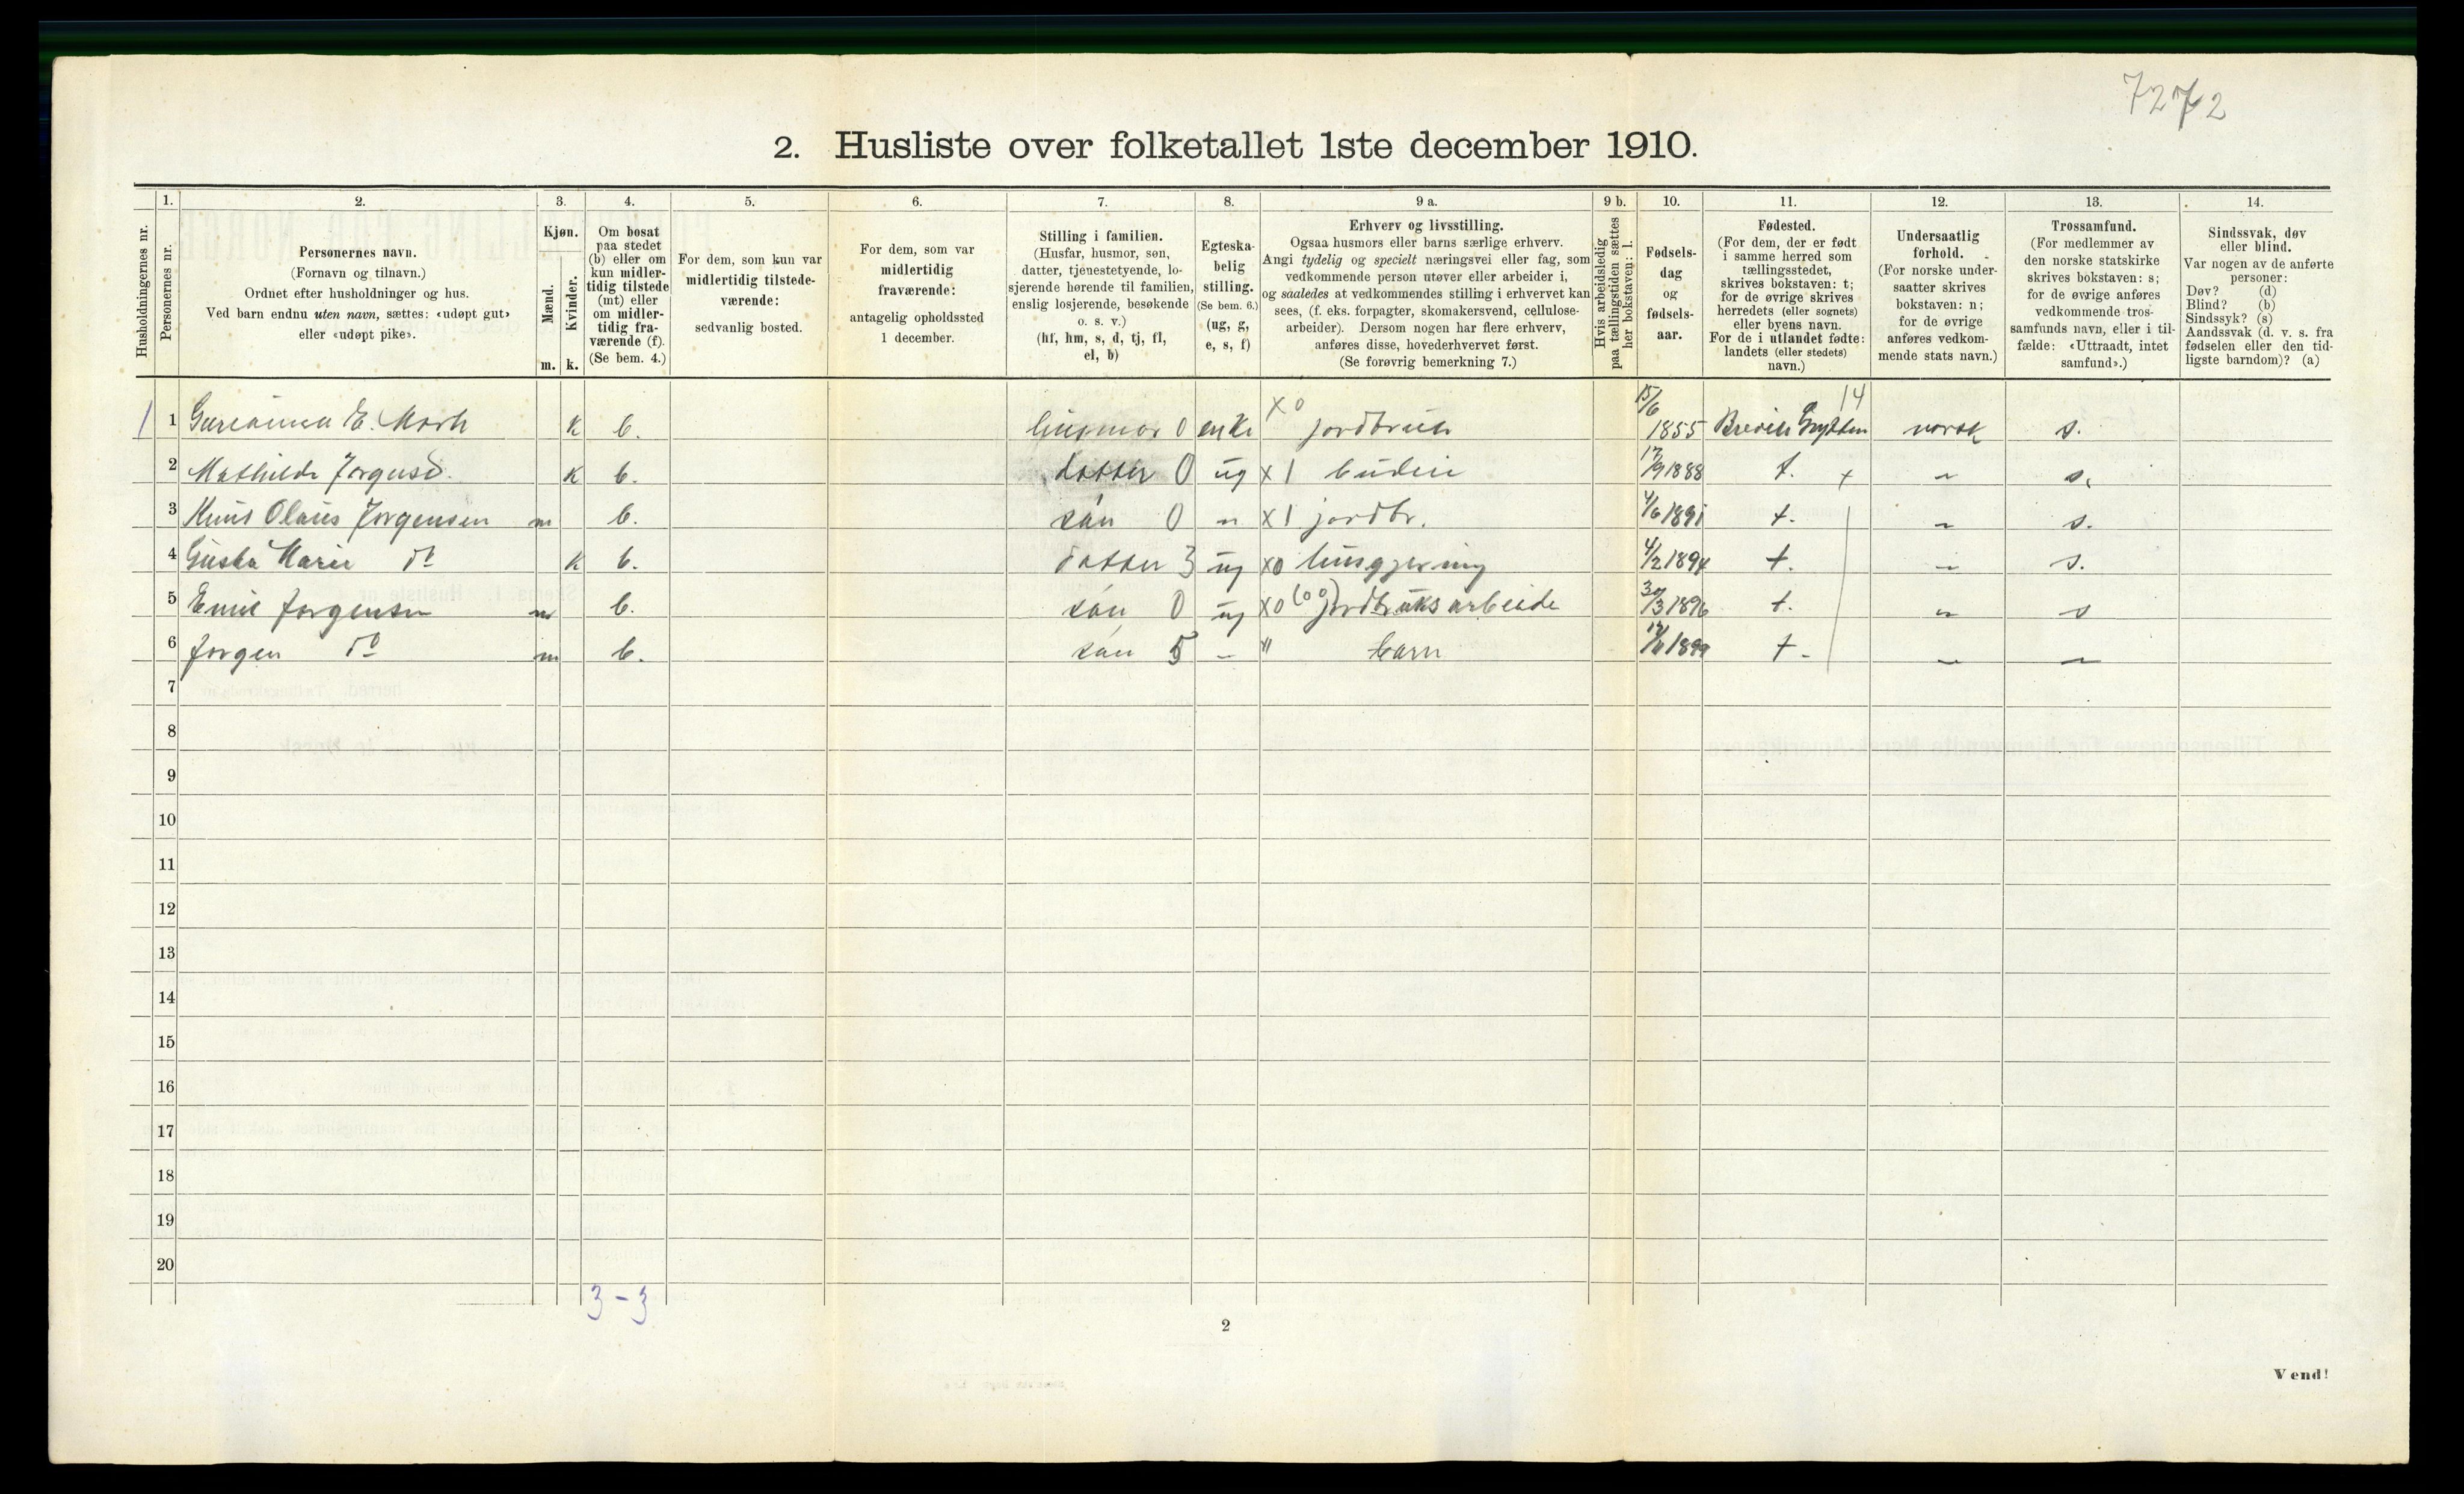 7272
2. Husliste over folketallet 1ste december 1910.
Husholdningernes nr.
1.
Personernes nr.
2.
Personernes navn.
(Fornavn og tilnavn.)
Ordnet efter husholdninger og hus.
Ved barn endnu uten navn, sættes: «udøpt gut»
eller «udøpt pike».
3.
Kjøn.
Mænd.
Kvinder.
m. k.
4.
Om bosat
paa stedet
(b) eller om
kun midler-
tidig tilstede
(mt) eller
om midler-
tidig fra-
værende (f).
(Se bem. 4.)
5.
For dem, som kun var
midlertidig tilstede-
værende:
sedvanlig bosted.
6.
For dem, som var
midlertidig
fraværende:
antagelig opholdssted
1 december.
7.
Stilling i familien.
(Husfar, husmor, søn,
datter, tjenestetyende, lo-
sjerende hørende til familien,
enslig losjerende, besøkende
o. s. v.)
(hf, hm, s, d, tj, fl,
el, b)
8.
Egteska-
belig
stilling.
(Se bem. 6.)
(ug, g,
e, s, f)
9 a.
Erhverv og livsstilling.
Ogsaa husmors eller barns særlige erhverv.
Angi tydelig og specielt næringsvei eller fag, som
vedkommende person utøver eller arbeider i,
og saaledes at vedkommendes stilling i erhvervet kan
sees, (f. eks. forpagter, skomakersvend, cellulose-
arbeider). Dersom nogen har flere erhverv,
anføres disse, hovederhvervet først.
(Se forøvrig bemerkning 7.)
9 b.
Hvis arbeidsledig
paa tællingstiden sættes
her bokstaven: l.
10.
Fødsels-
dag
og
fødsels-
aar.
11.
Fødested.
(For dem, der er født
i samme herred som
tællingsstedet,
skrives bokstaven: t;
for de øvrige skrives
herredets (eller sognets)
eller byens navn.
For de i utlandet fødte:
landets (eller stedets)
navn.)
12.
Undersaatlig
forhold.
(For norske under-
saatter skrives
bokstaven: n;
for de øvrige
anføres vedkom-
mende stats navn.)
13.
Trossamfund.
(For medlemmer av
den norske statskirke
skrives bokstaven: s;
for de øvrige anføres
vedkommende tros-
samfunds navn, eller i til-
fælde: «Uttraadt, intet
samfund».)
14.
Sindssvak, døv
eller blind.
Var nogen av de anførte
personer:
Døv? (d)
Blind? (b)
Sindssyk? (s)
Aandssvak (d. v. s. fra
fødselen eller den tid-
ligste barndom)? (a)
1 1 E. k b. husmor 0 enke x0 jordbruk 15/6 1855 14 norsk s.
2 Mathilde k b. datter 0 ug x1 budeie 1888 t. x " s.
3 Knut Olaus Jørgensen m b. søn 0 " x1 jordbr. 1891 t. " s.
4 Marie do k b. datter 3 ug x0 husgjerning 4/2 1894 t. " s.
5 Emil Jørgensen m b. søn 0 ug x0 (00) jordbruksarbeide 30/3 1896 t. " s
6 Jørgen do m b. søn 5 " " barn 1899 t. " "
7
8
9
10
11
12
13
14
15
16
17
18
19
20
3-3
2
Vend!